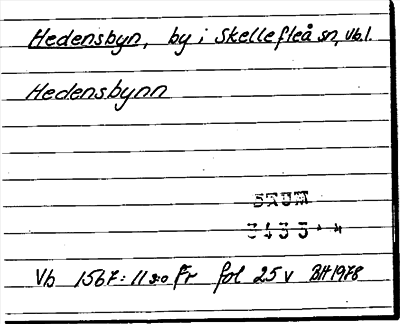 Hedensbyn, by i Skellefteå sn, Vb.l.
Hedensbynn
Vb 1567: 11 s:o Fr fol 25 v BH 1978